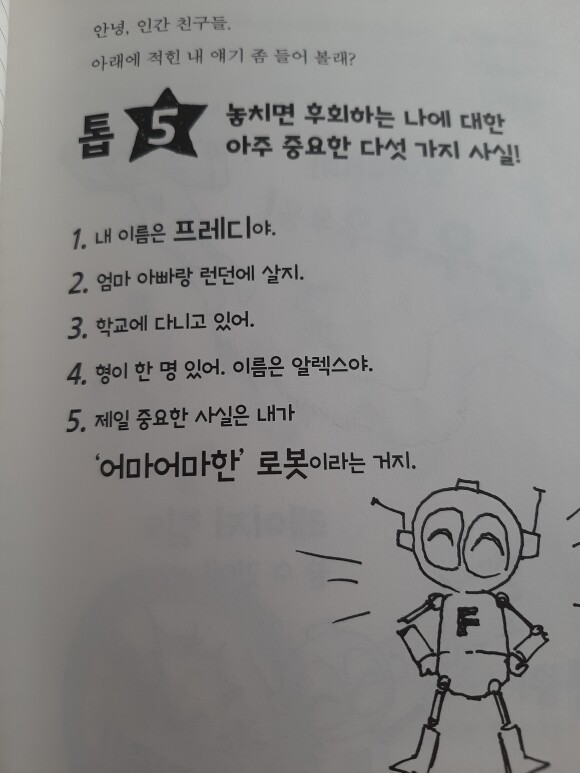 안녕, 인간 친구들.
아래에 적힌 내 얘기 좀 들어 볼래?
톱 5 놓치면 후회하는 나에 대한
아주 중요한 다섯 가지 사실!
1. 내 이름은 프레디야.
2. 엄마 아빠랑 런던에 살지.
3. 학교에 다니고 있어.
4. 형이 한 명 있어. 이름은 알렉스야.
5. 제일 중요한 사실은 내가
‘어마어마한’ 로봇이라는 거지.
F